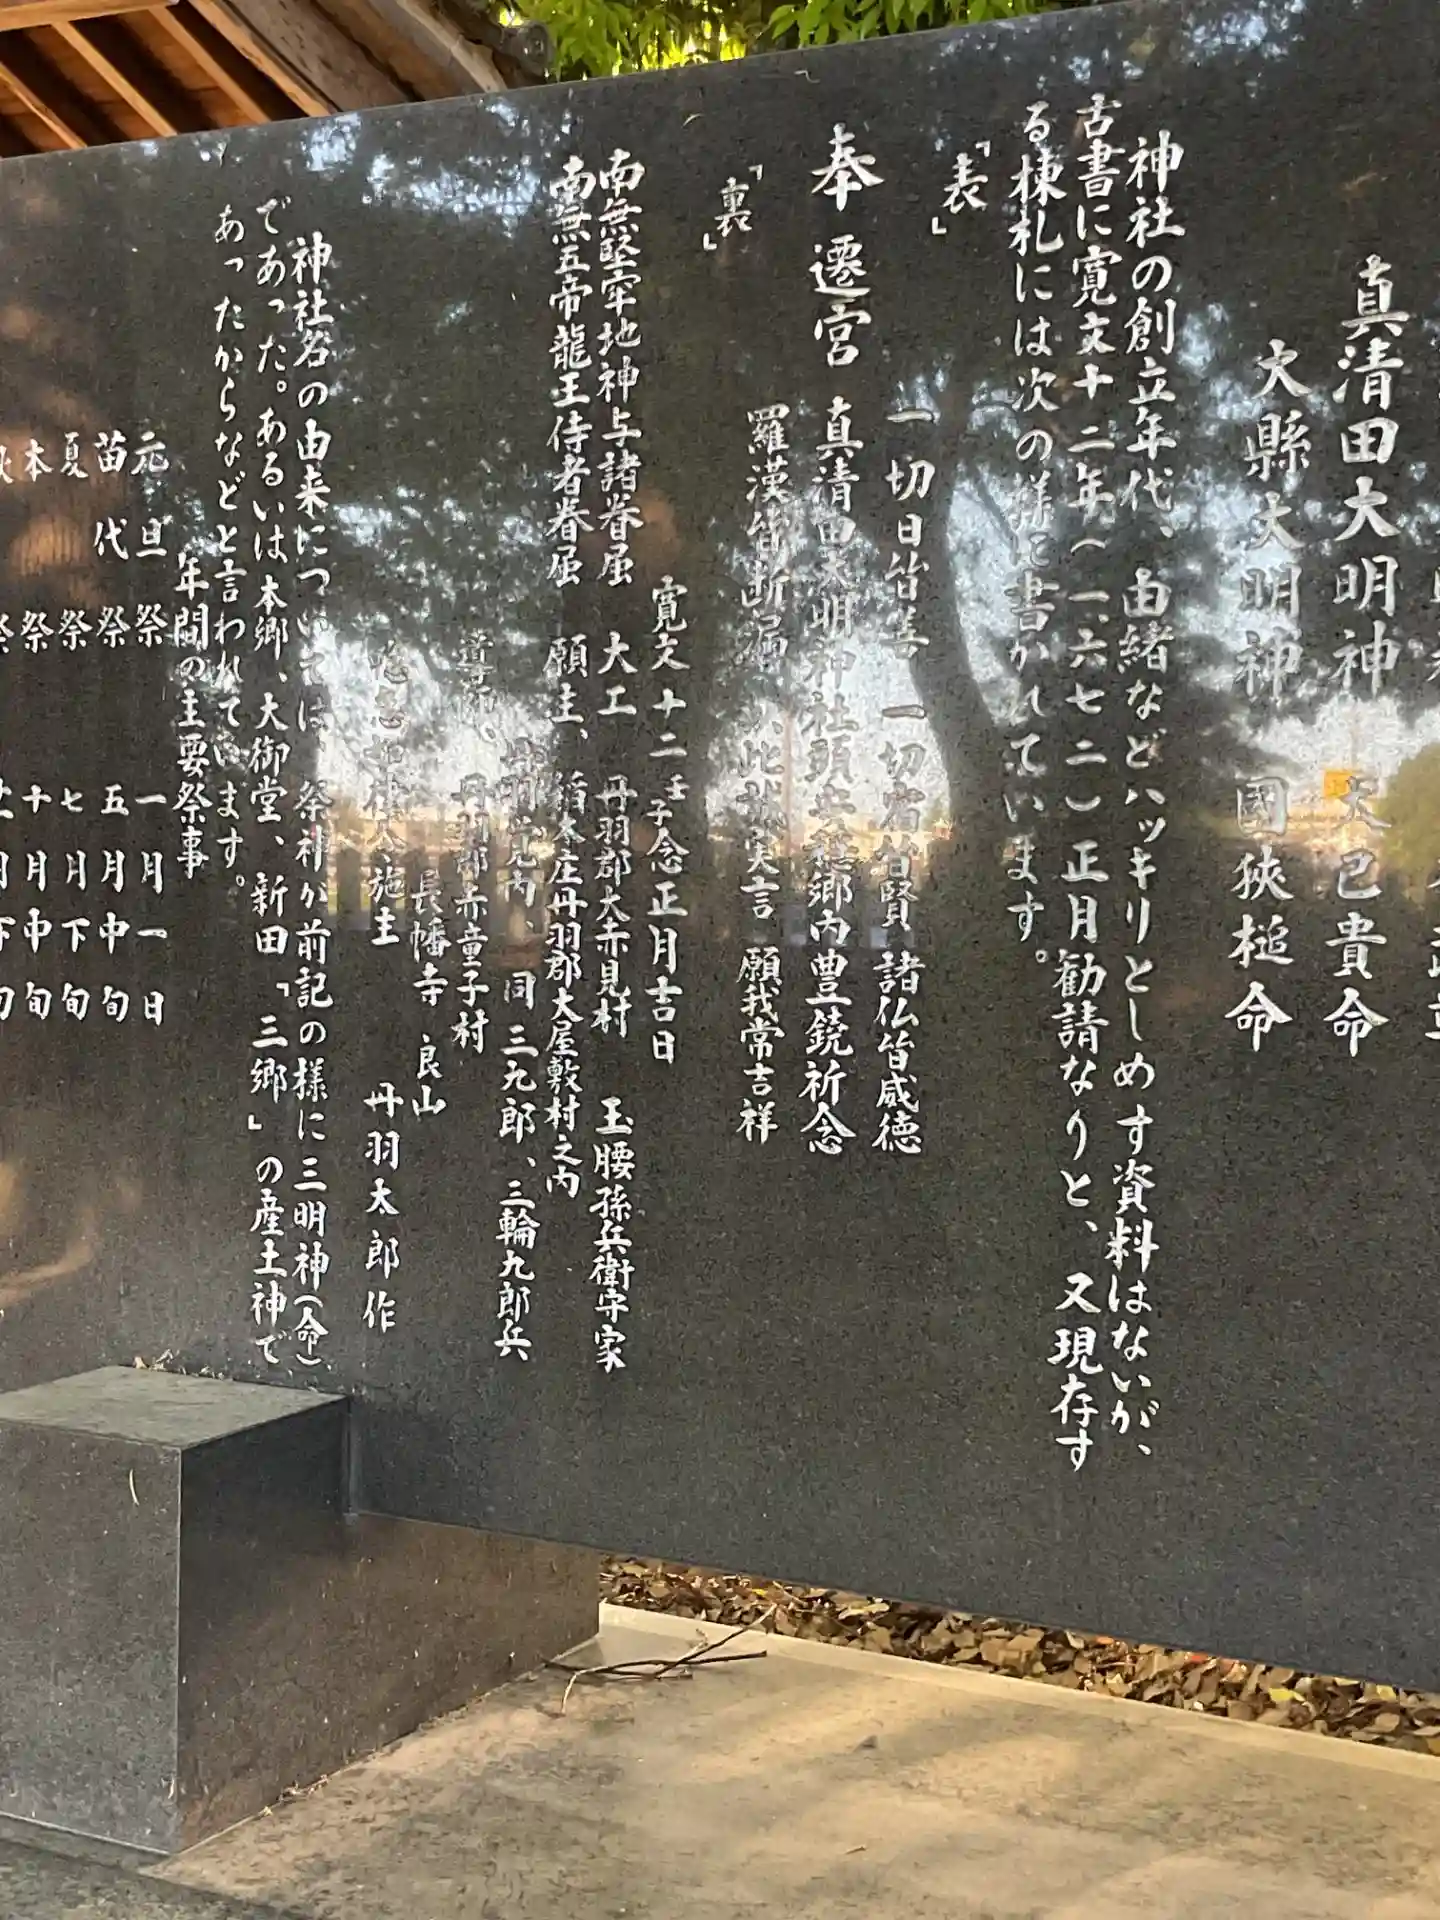 真清田大明神　大己貴命
大縣大明神　國狭槌命
神社の創立年代、由緒などハッキリとしめす資料はないが、
古書に寛文十二年(一六七二)正月勧請なりと、又現存す
る棟札には次の様に書かれています。
「表」
一切日皆善　一切宿皆賢　諸仏皆威徳
奉遷宮　真清田大明神社頭安穏郷内豊鐃祈念
羅漢皆断漏　以此誠実言　願我常吉祥
「裏」
寛文十二壬子念正月吉日
南無堅牢地神与諸眷属　大工　丹羽郡大赤見村　玉腰孫兵衛守家
南無五帝龍王侍者眷属　願主、稲木庄丹羽郡大屋敷村之内
同三九郎、三輪九郎兵
丹羽郡赤童子村
長幡寺　良山
施主　丹羽太郎作
神社名の由来については、祭神が前記の様に三明神(命)
であった。あるいは本郷、大御堂、新田「三郷」の産土神で
あったからなどと言われています。
年間の主要祭事
元旦祭　一月一日
苗代祭　五月中旬
夏祭　七月下旬
本祭　十月中旬